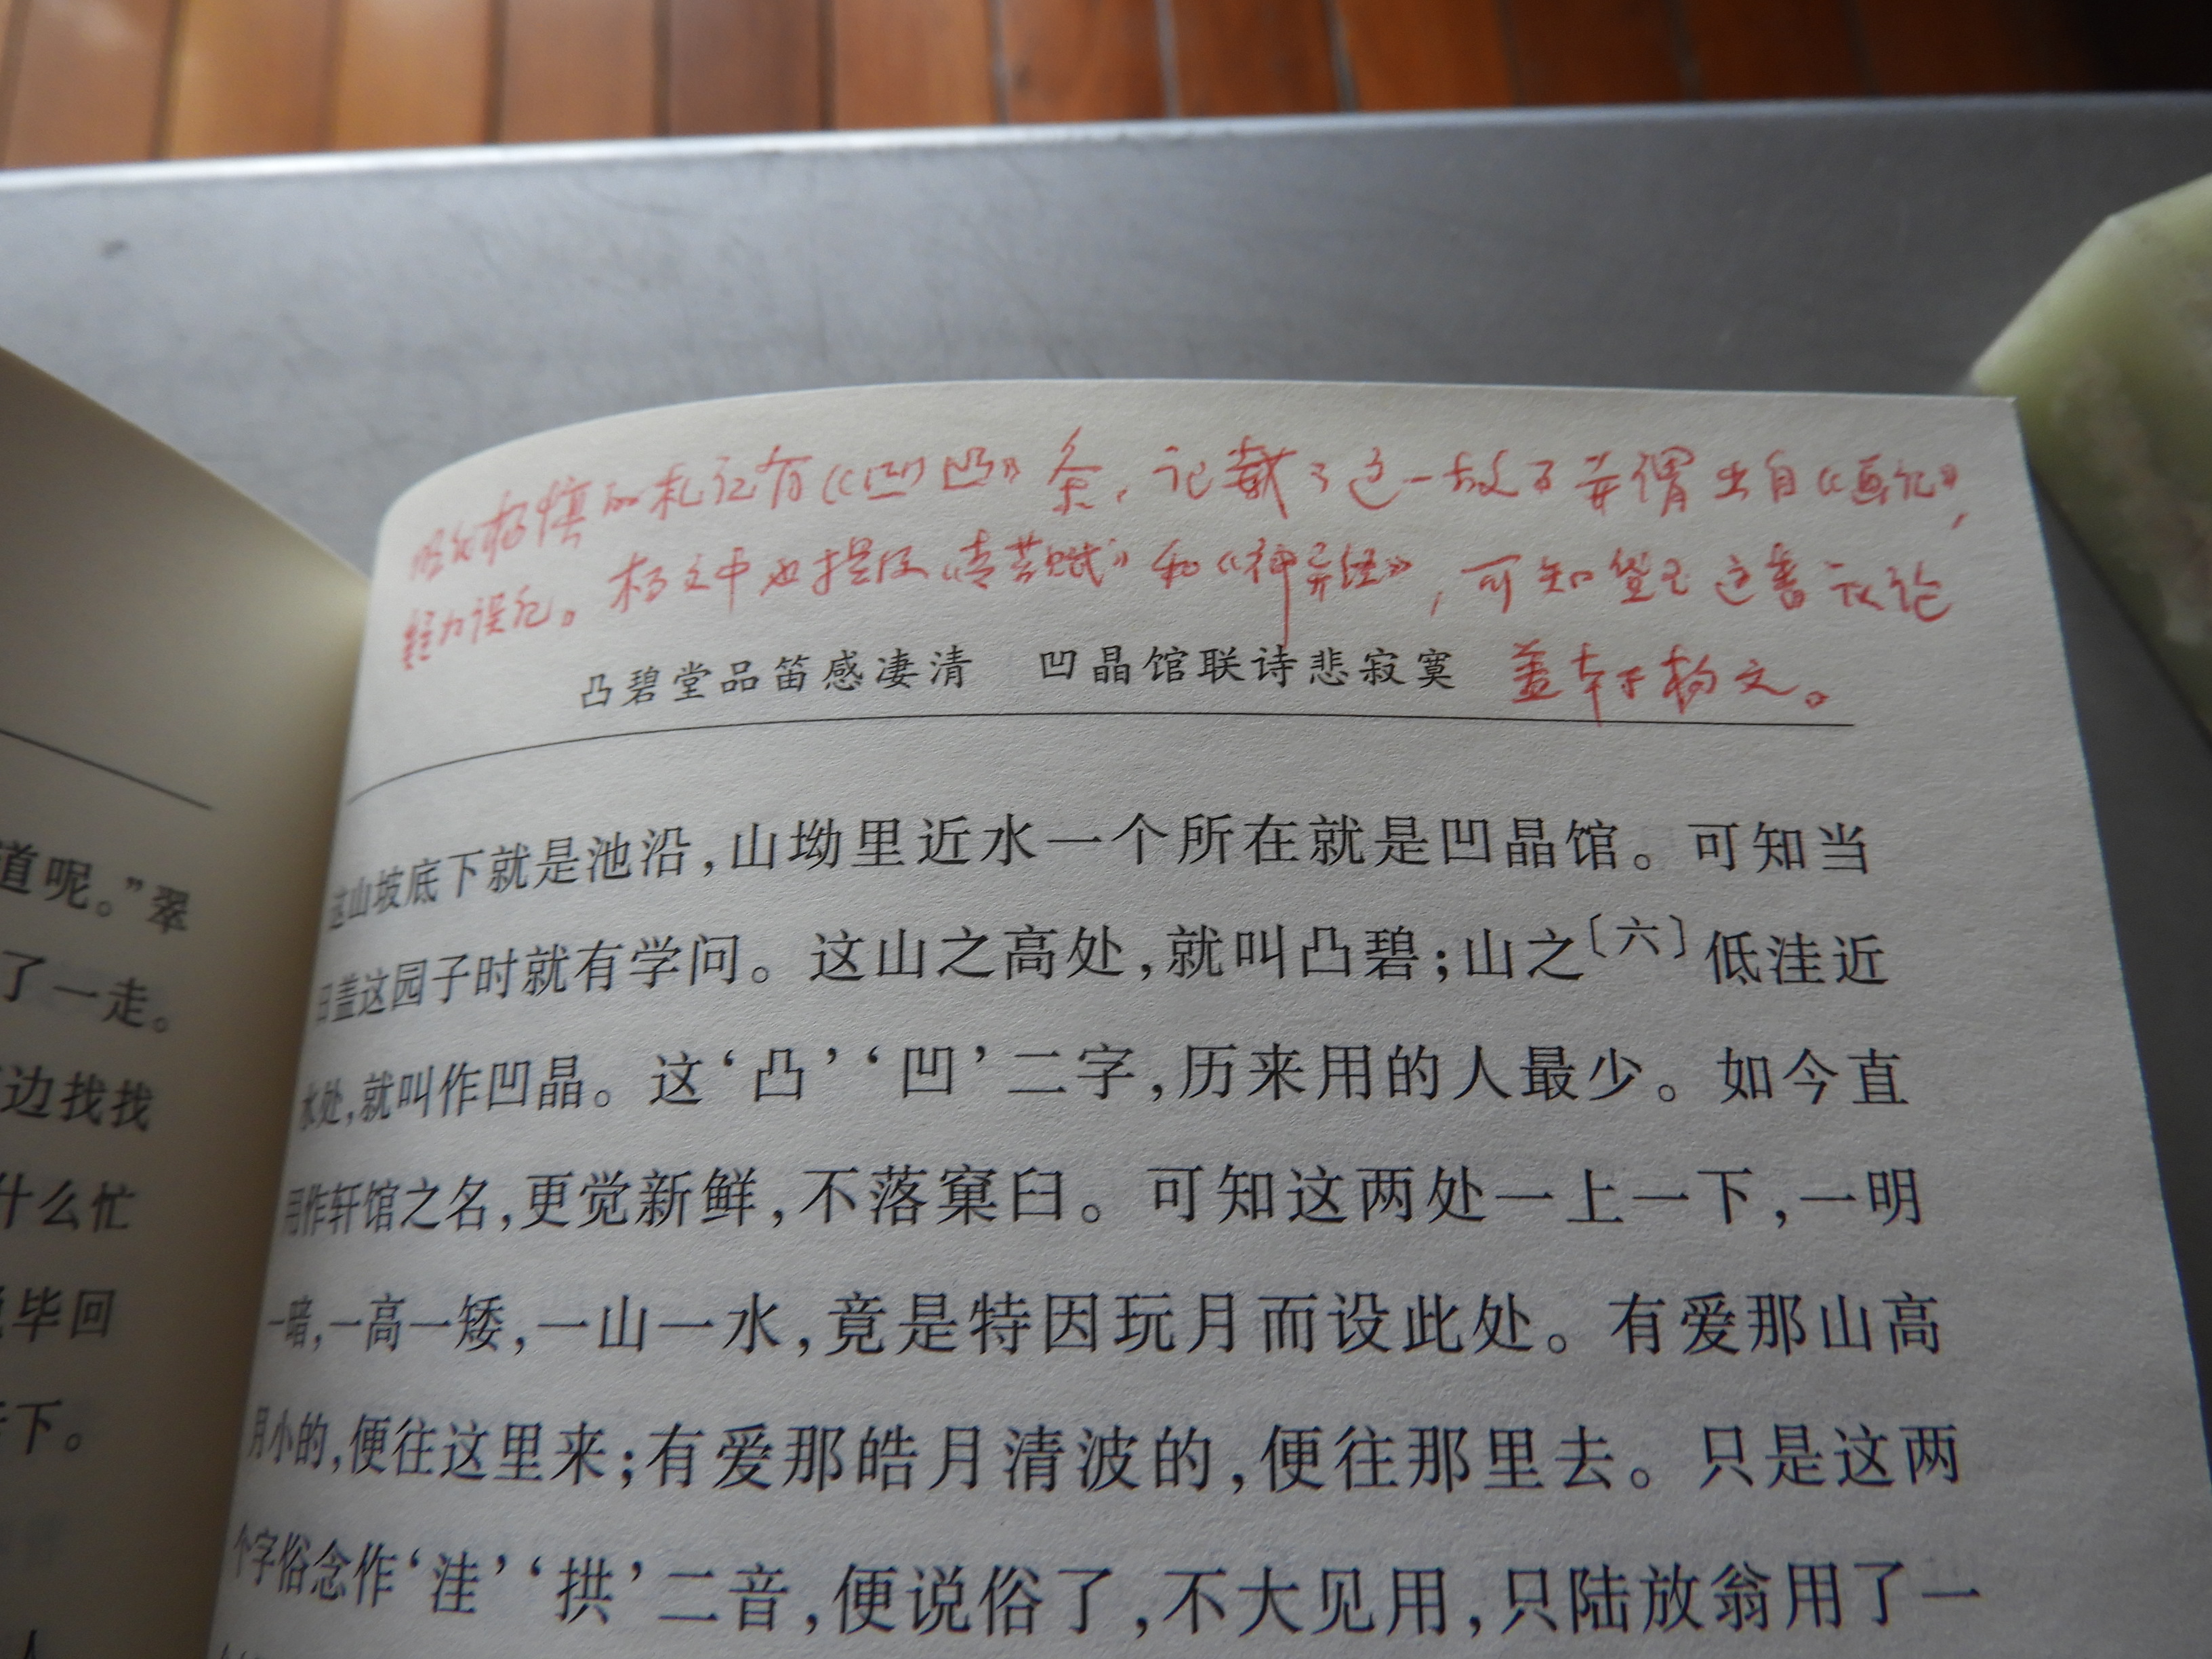 明代杨慎的札记有《凹凸》条，记载了这一故事并谓出自《画记》，
疑为误记。杨文中也提及《青苔赋》和《神异经》，可知黛玉这番议论
盖本于杨文。
凸碧堂品笛感凄清　凹晶馆联诗悲寂寞
这山坡底下就是池沿，山坳里近水一个所在就是凹晶馆。可知当
日盖这园子时就有学问。这山之高处，就叫凸碧；山之〔六〕低洼近
水处，就叫作凹晶。这‘凸’‘凹’二字，历来用的人最少。如今直
用作轩馆之名，更觉新鲜，不落窠臼。可知这两处一上一下，一明
一暗，一高一矮，一山一水，竟是特因玩月而设此处。有爱那山高
月小的，便往这里来；有爱那皓月清波的，便往那里去。只是这两
个字俗念作‘洼’‘拱’二音，便说俗了，不大见用，只陆放翁用了一
道呢。”翠
了一走。
边找找
什么忙
毕回
下。
人